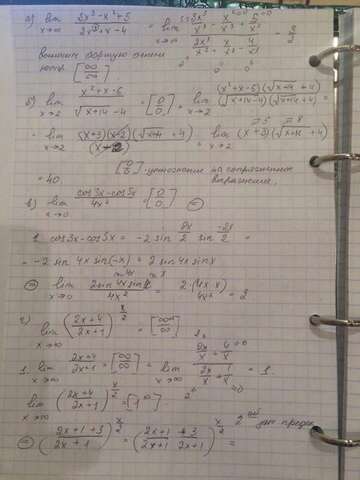 а) lim x→∞ (3x³ - x² + 5)/(2x³ + x - 4) = lim x→∞ (3x³/x³ - x²/x³ + 5/x³)/(2x³/x³ + x/x³ - 4/x³) = 3/2
[∞/∞]
б) lim x→2 (x² + x - 6)/(√(x+14) - 4) = [0/0] = lim x→2 (x² + x - 6)(√(x+14) + 4)/(√(x+14) - 4)(√(x+14) + 4) =
= lim x→2 (x+3)(x-2)(√(x+14) + 4)/(x-2) = lim x→2 (x+3)(√(x+14) + 4)
= 40 [0/0] - умножение на сопряженное
выражение.
в) lim x→0 (cos3x - cos5x)/4x² = [0/0] =
1. cos3x - cos5x = -2 sin 8x/2 sin -2x/2 =
= -2 sin 4x sin(-x) = 2 sin 4x sin x
= lim x→0 2 sin 4x sin x/4x² = 2·4x·x/4x² = 2
г) lim x→∞ ((2x+4)/(2x+1))^(x/2) = [∞/∞]
1. lim x→∞ (2x+4)/(2x+1) = [∞/∞] = lim x→∞ (2x/x + 4/x)/(2x/x + 1/x) = 1.
lim x→∞ ((2x+4)/(2x+1))^(x/2) = [1^∞]
= ((2x+1+3)/(2x+1))^(x/2) = ((2x+1)/(2x+1) + 3/(2x+1))^(x/2) =